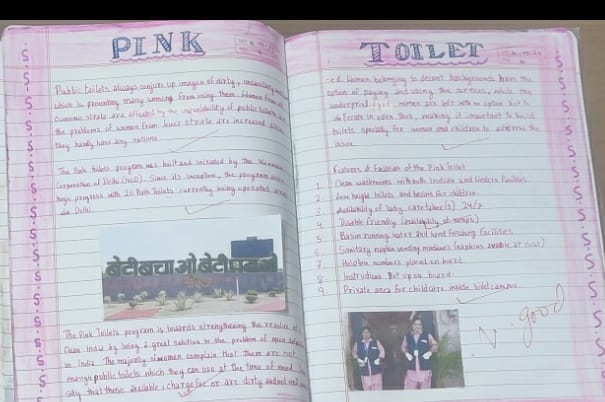 PINK
Public toilets always conjure up images of dirty, unsanitary
which is preventing many women from using them. Women from all
economic strata are affected by the unavailability of public toilets
the problems of women from lower strata are increased since
they hardly have any options
The Pink toilets program was built and initiated by the
Corporation of Delhi Since its inception, the program
huge progress with 20 Pink Toilets currently being operated
in Delhi
बेटी बचाओ बेटी
The Pink Toilets program is towards strengthening the resolve of
Clean India by being a great solution to the problem of open
in India. The majority of women complain that there are not
enough public toilets which they can use at the time of need.
say that those available, charge fee or are dirty and
TOILET
-ed. Women belonging to decent backgrounds have the
option of paying and using the services, while the
underprivileged women are left with no option but to
defecate in open. Thus, making it important to build
toilets specially for women and children to address the
issue.
Features & Facilities of the Pink Toilet
1. Clean washrooms with both Indian and Western facilities.
2. Low height toilets and basins for children.
3. Availability of lady caretaker(s) 24/7
4. Disable friendly (availability of ramps)
5. Basin running water and hand facilities
6. Sanitary napkin vending machines (napkins available at cost)
7. Helpline numbers placed on board.
8. Instructions Put up on board.
9. Private area for childcare inside
V. good